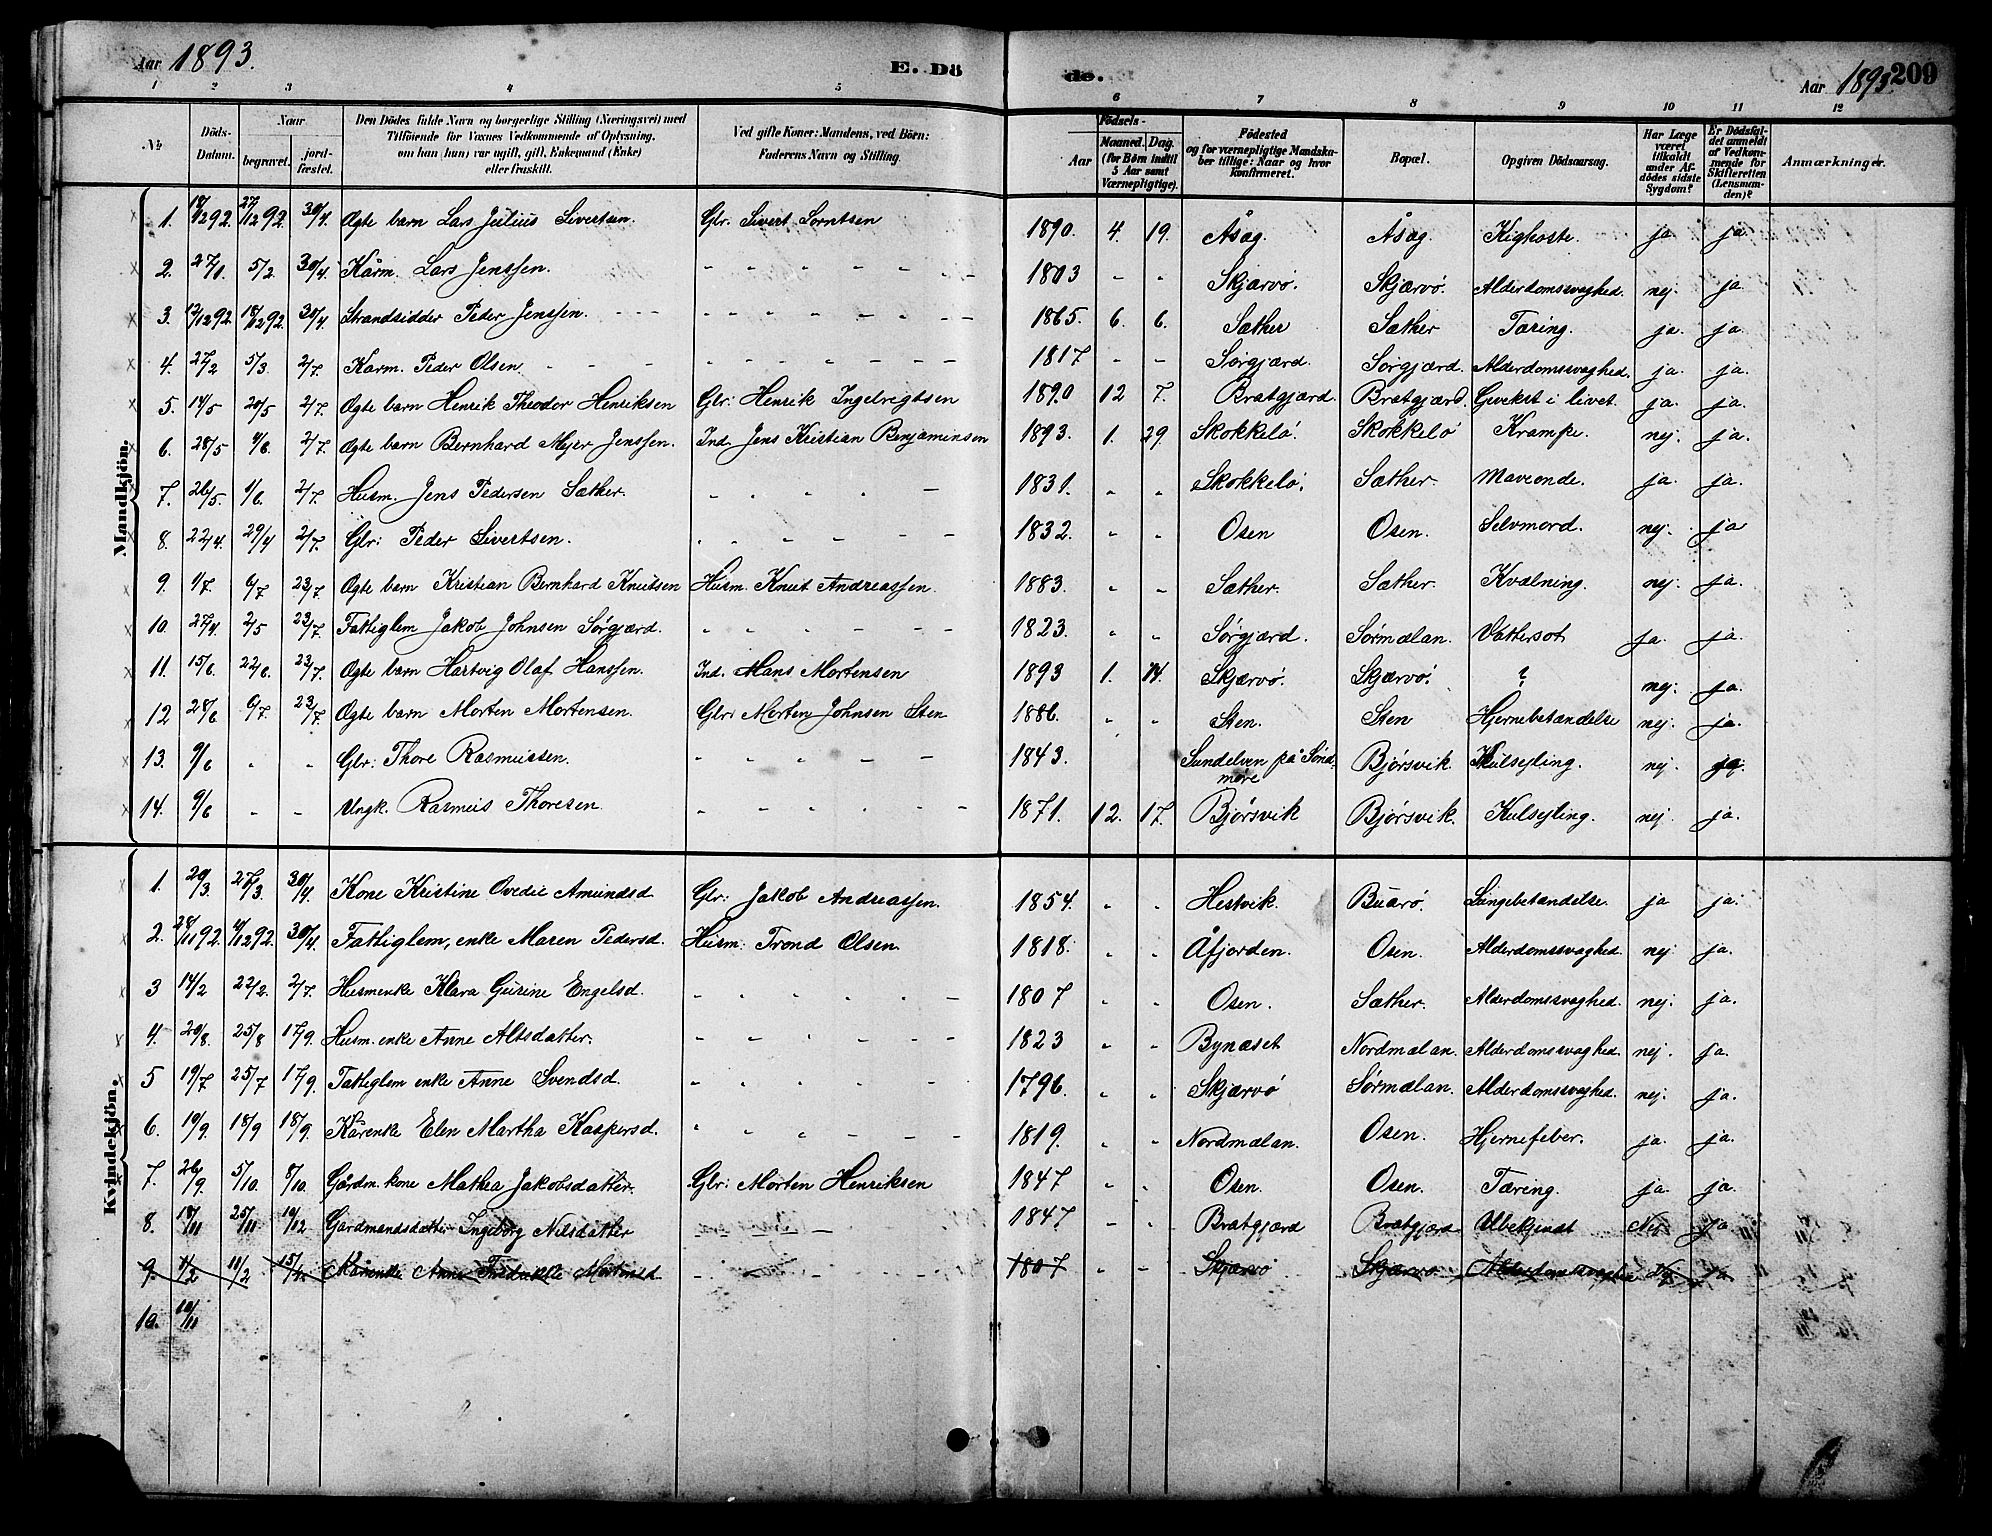 Aar 1893. E. Dö de. Aar 1893. 209
1 2 3 4 5 6 7 8 9 10 11 12
№ Döds-Datum. Naar begravet. jordfæstet. Den Dödes fulde Navn og borgerlige Stilling (Næringsvei) med Tilföiende for Voxnes Vedkommende af Oplysning, om han (hun) var ugift, gift, Enkemand (Enke) eller fraskilt. Ved gifte Koner: Mandens, ved Börn: Faderens Navn og Stilling. Födsels- Aar Maaned. Dag. (for Börn indtil 5 Aar samt Værnepligtige). Födested og for værnepligtige Mandskaber tillige: Naar og hvor konfirmeret. Bopæl. Opgiven Dödsaarsag. Har Læge været tilkaldt under Afdödes sidste Sygdom? Er Dödsfaldet anmeldt af Vedkommende for Skifteretten (Lensmanden)? Anmærkninger.
Mandkjön.
1. 18/12 92. 27/12 92. 30/4 Ægte barn Lars Julius Sivertsen. Gbr. Sivert Sorntsen 1890. 4. 19. Åsag. Åsag. Kighoste. ja ja
2. 27/1. 5/2. 30/4 Kårm. Lars Jenssen. 1803 Skjærvø. Skjærvø. Alderdomssvaghed. nej. ja
3. 12/12 92 18/12 92. 30/4 Strandsidder Peder Jenssen. 1865. 6. 6. Sæther Sæther Tæring. ja. ja.
4. 27/2 5/3. 2/7. Kårm. Peder Olsen 1817 Sørgjærd. Sørgjærd. Alderdomssvaghed. ja. ja.
5. 14/5 20/5 2/7. Ægte barn Henrik Theodor Henriksen Gbr: Henrik Ingebrigtsen 1890 12 7. Bratgjærd. Bratgjærd. Givekst i livet. ja. ja.
6. 28/5 4/6. 2/7 Ægte barn Bernhard Mejer Jenssen. Ind. Jens Kristian Benjaminsen 1893. 1. 29. Skokkelø. Skokkelø Krampe. nej. ja.
7. 26/5. 1/6. 2/7. Husm. Jens Pedersen Sæther. 1831. Skokkelø. Sæther. Maveonde. ja. ja.
8. 22/4. 29/4 2/7. Gbr: Peder Sivertsen. 1832. Osen Osen. Selvmord. nej. ja
9. 1/7. 6/7 23/7 Ægte barn Kristian Bernhard Knutsen Husm. Knut Andreassen. 1883. Sæther. Sæther. Kvælning. nej. ja.
10. 27/4. 2/5 23/7. Fattiglem Jakob Johnsen Sørgjærd. 1823. Sørgjærd. Sørmælan. Vattersot ja. ja.
11. 15/6 22/6. 23/7. Ægte barn Hartvig Olaf Hanssen. Ind. Hans Mortensen 1893 1. 14. Skjærvø. Skjærvø. ? nej. ja.
12 28/6 6/7. 23/7. Ægte barn Morten Mortensen. Gbr: Morten Johnsen Sten 1886. Sten. Sten Hjernebetændelse nej. ja.
13. 9/6 Gbr: Thore Rasmussen. 1843. Sundelven på Søndmøre Bjørsvik. Kulsejling. nej.
14. 9/6 Ungk. Rasmus Thoresen 1871. 12. 17. Bjørsvik Bjørsvik. Kulsejling. nej. ja.
Kvindekjön.
1. 20/3 27/3 30/4. Kone Kristine Ovedie Amundsd Gbr: Jakob Andreassen. 1854. Hestvik. Buarø. Lungebetændelse. ja ja.
2. 28/11 92. 4/12 92. 30/4. Fattiglem, enke Maren Pedersd. Husm. Trond Olsen 1818. Åfjorden. Osen. Alderdomssvaghed. nej ja.
3 14/2 22/2. 2/7. Husmenke Klara Gurine Engelsd. 1807 Osen. Sæther. Alderdomssvaghed. nej. ja.
4. 20/8. 25/8 17/9. Husm. enke Anne Altsdatter. 1823 Bynæset Nordmælan. Alderdomssvaghed. nej. ja.
5 19/7 25/7 17/9. Fattiglem enke Anne Svendsd. 1796. Skjærvø Sørmælan. Alderdomssvaghed. nej. ja.
6. 10/9. 18/9 18/9. Kårenke Elen Martha Kaspersd. 1819. Nordmælan. Osen. Hjernefeber. ja. ja.
7. 26/9. 5/10. 8/10. Gårdm. kone Mathea Jakobsdatter. Gbr: Morten Henriksen 1847 Osen. Osen. Tæring. ja. ja.
8. 18/11 25/11 10/12 Gårdmandsdatter Ingeborg Nilsdatter 1847 Bratgjærd Bratgjærd Ubekjendt Nej ja
9. 4/2 11/2 15/4. Kårenke Anne Mortensd 1807 Skjærvø Skjærvø Alderdomssvaghed Nej ja
10. 10/11